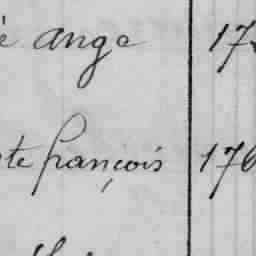 é ange 17
te françois 176